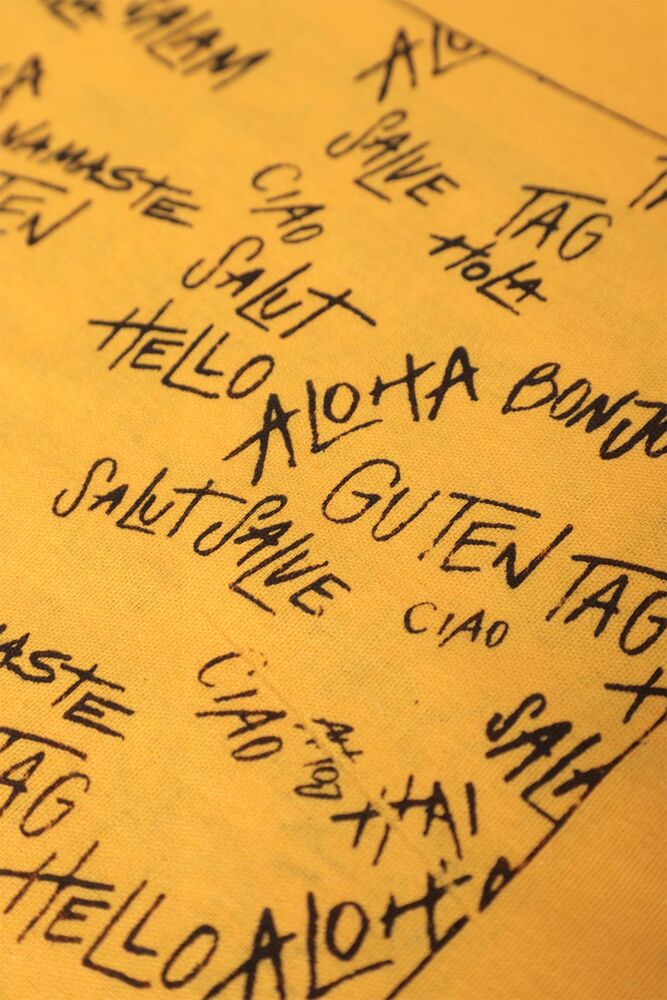 SALAM
ALO
SALVE
NAMASTE
CIAO
TAG
TEN
HOLA
SALUT
HELLO
ALOHA BONJO
SALUT SALVE
GUTEN TAG
CIAO
ASTE
CIAO
SALA
TAG
HAI
HELLO ALOHA